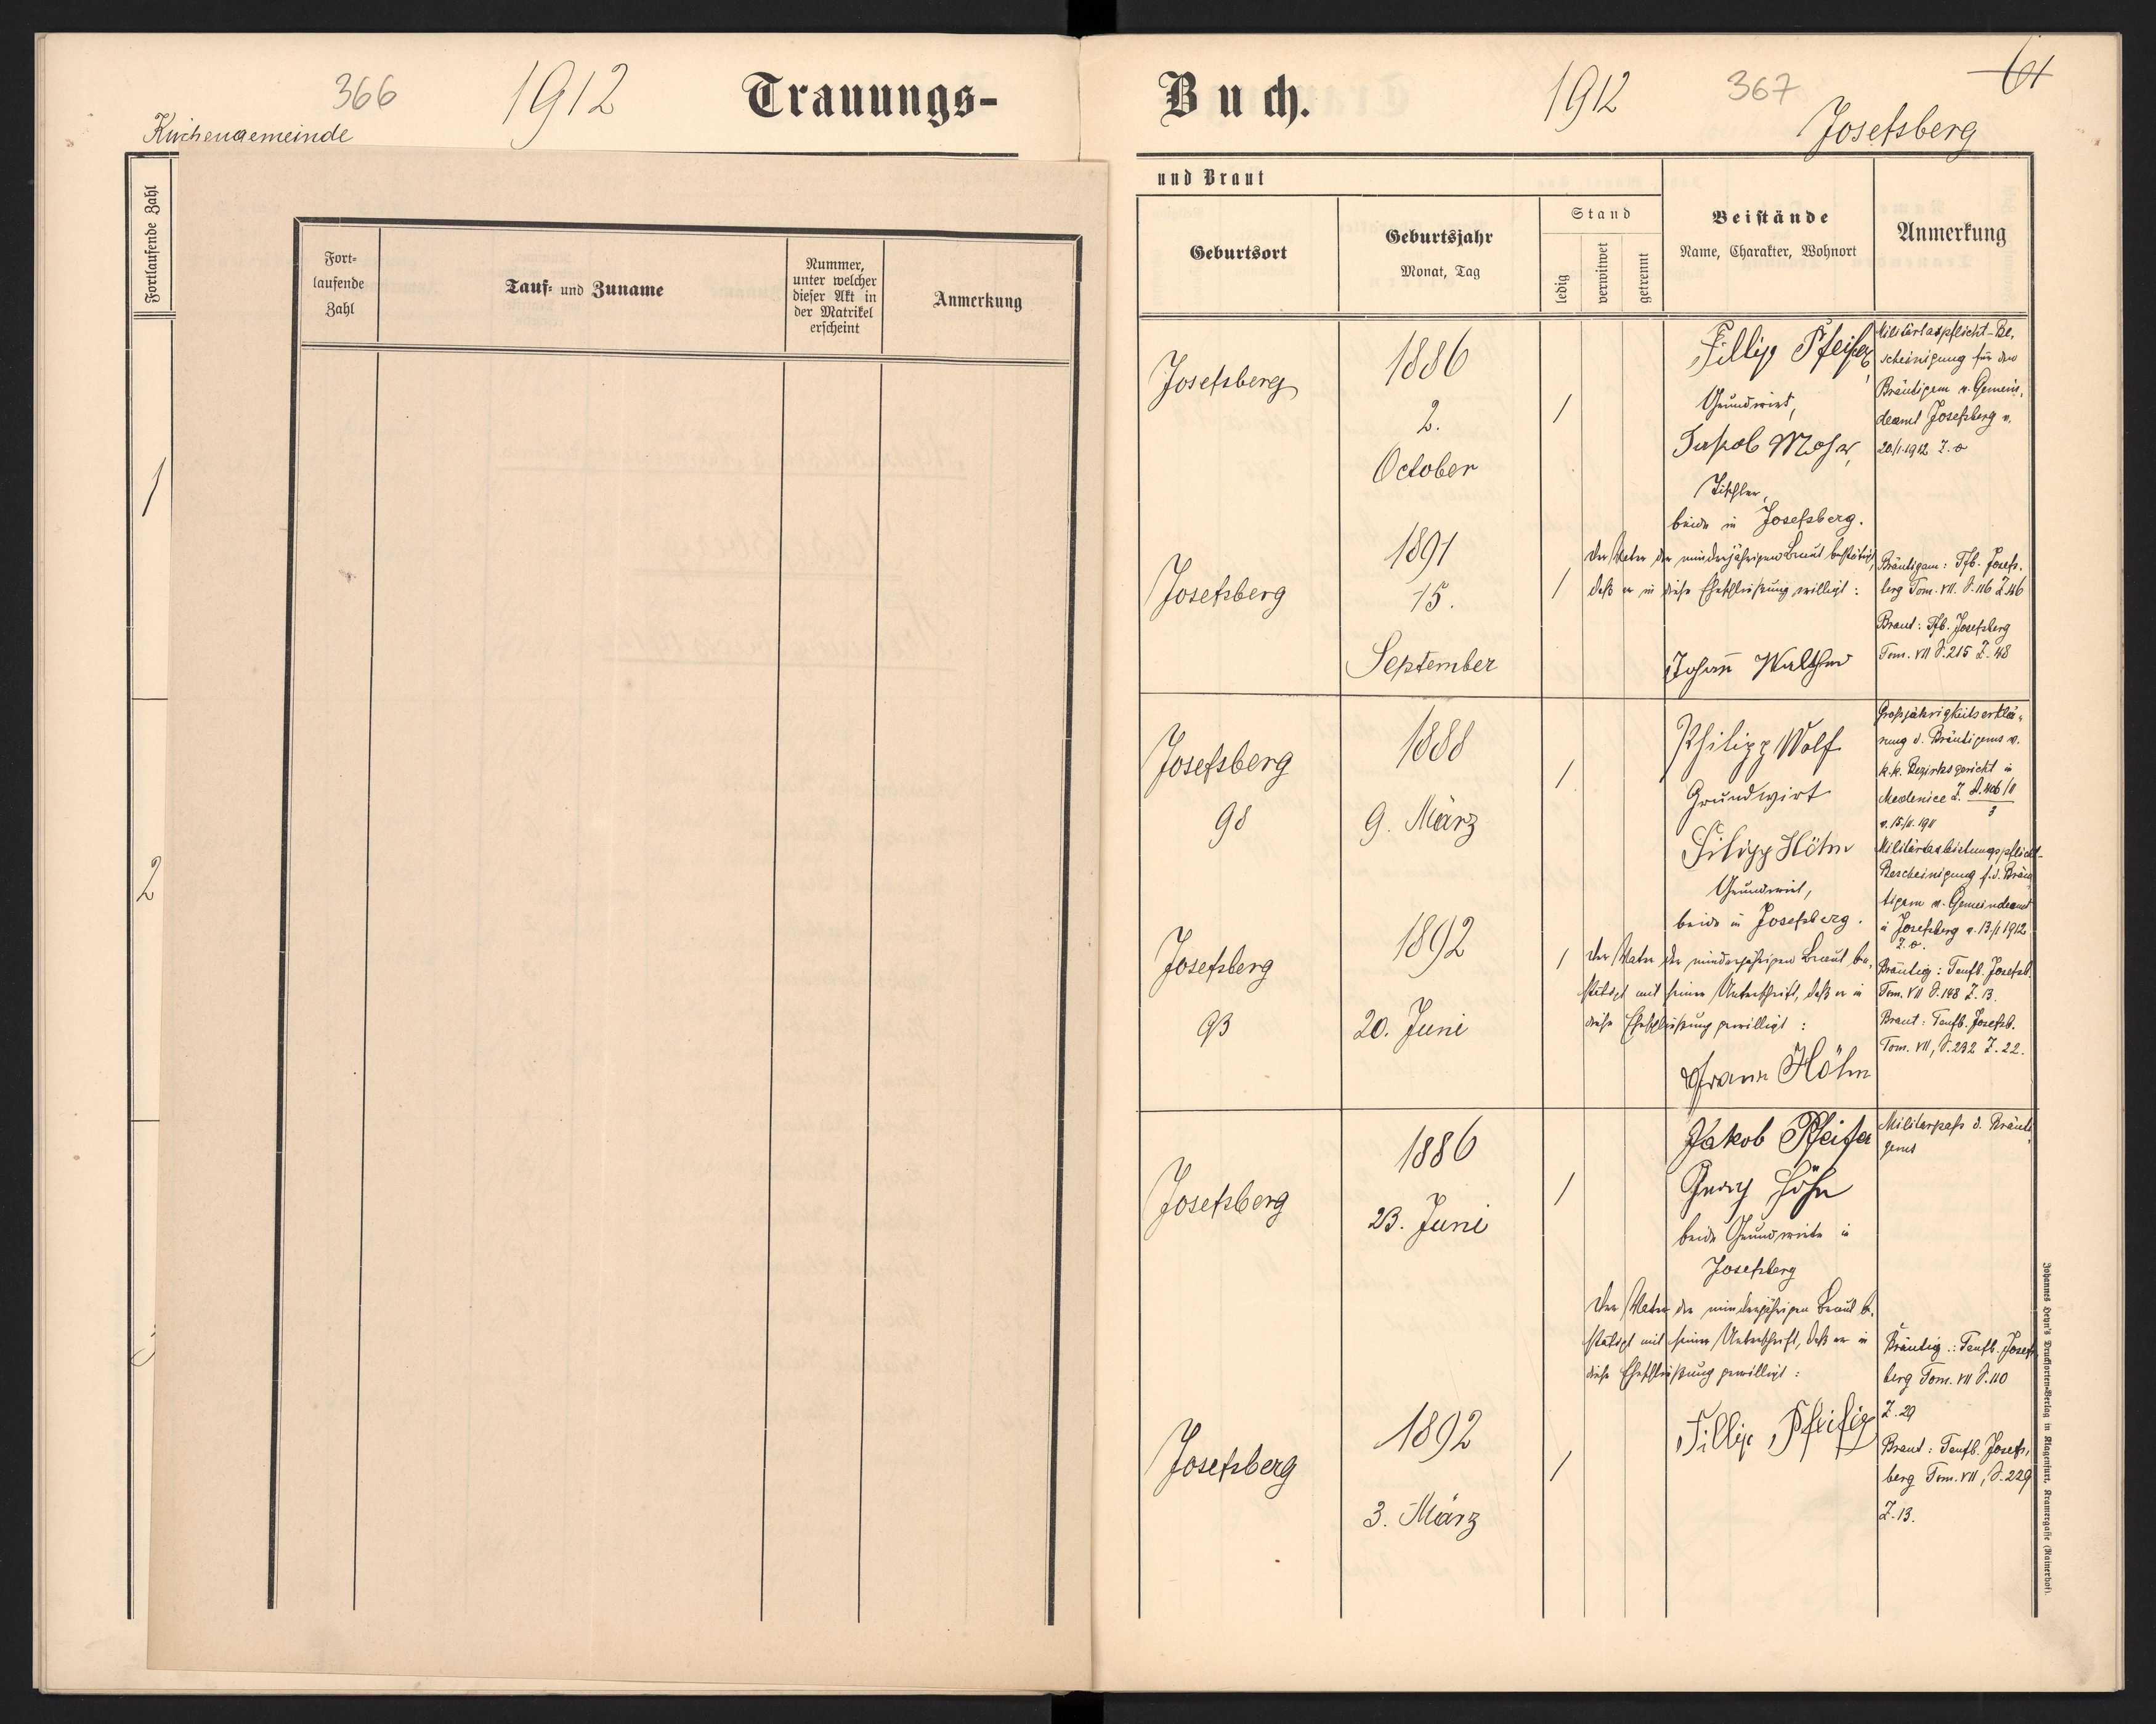 366
1912
Trauungs-
Kirchengemeinde
Fortlaufende Zahl
1
2
Fort-
laufende
Zahl
Tauf- und Zuname
Nummer,
unter welcher
dieser Akt in
der Matrikel
erscheint
Anmerkung
Buch.
1912
367
61
Josefsberg
und Braut
Geburtsort
Geburtsjahr
Monat, Tag
Stand
ledig
verwitwet
getrennt
Beistände
Name, Charakter, Wohnort
Anmerkung
Josefsberg
1886
2.
October
/
Fillip Pfeifer,
Grundwirt,
Jakob Mohr,
Tischler,
beide in Josefsberg.
Militärtaxpflicht-Be-
scheinigung für den
Bräutigam v. Gemein-
deamt Josefsberg v.
20/1.1912 Z. o
Josefsberg
1891
15.
September
/
Der Vater der minderjährigen Braut bestätigt,
daß er in diese Eheschließung willigt:
Johann Walther
Bräutigam: Tfb. Josefs-
berg Tom. VII. S. 116 Z. 46
Braut: Tfb. Josefsberg
Tom. VII S. 215 Z. 48
Josefsberg
98
1888
9. März
/
Philipp Wolf
Grundwirt
Filipp Höhn
Grundwirt,
beide in Josefsberg.
Großjährigkeitserklä-
rung d. Bräutigams v.
k.k. Bezirksgericht in
Medenice Z.
3
Militärtaxleistungspflicht-
Bescheinigung f. d. Bräu-
tigam v. Gemeindeamt
in Josefsberg v. 13/1 1912
Z. o.
Josefsberg
93
1892
20. Juni
/
Der Vater der minderjährigen Braut be-
stätigt mit seiner Unterschrift, daß er in
diese Eheschließung gewilligt:
Franz Höhn
Bräutig: Taufb. Josefsb.
Tom. VII S. 148 Z. 13.
Braut: Taufb. Josefsb.
Tom. VII, S. 232 Z. 22.
Josefsberg
1886
23. Juni
/
Jakob Pfeifer
Georg Höhn
beide Grundwirte in
Josefsberg
Militärpaß d. Bräuti-
gams
Der Vater der minderjährigen Braut be-
stätigt mit seiner Unterschrift, daß er in
diese Eheschließung gewilligt:
Fillip Pfeifer
Josefsberg
1892
3. März
/
Bräutig.: Taufb. Josefs-
berg Tom. VII S. 110
Z. 29
Braut: Taufb. Josefs-
berg Tom. VII, S. 229
Z. 13.
Johannes Heyn's Drucksorten-Verlag in Klagenfurt, Kramergasse (Rainerhof).